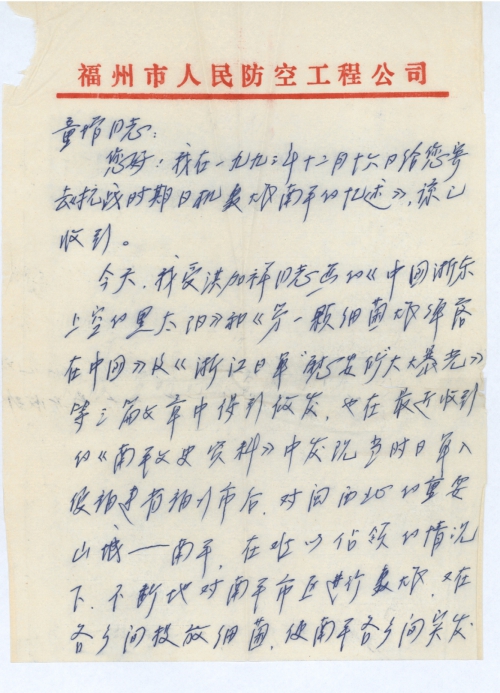 福州市人民防空工程公司
童增同志：
您好！我在一九九二年十二月十六日给您寄
去抗战时期日机轰炸南平的忆述》，谅已
收到。
今天，我受洪加祥同志 的《中国浙东
上空的黑太阳》和《第一颗细菌炸弹落
在中国》及《浙江日军"慰安 大暴光》
等三篇文章中得到启发，也在最近收到
的《南平文史资料》中发现当时日军入
侵福建省福州市后，对闽西北的重要
山城——南平，在难以占领的情况
下，不断地对南平市区进行轰炸，又在
各乡间投放细菌，使南平各乡间突发